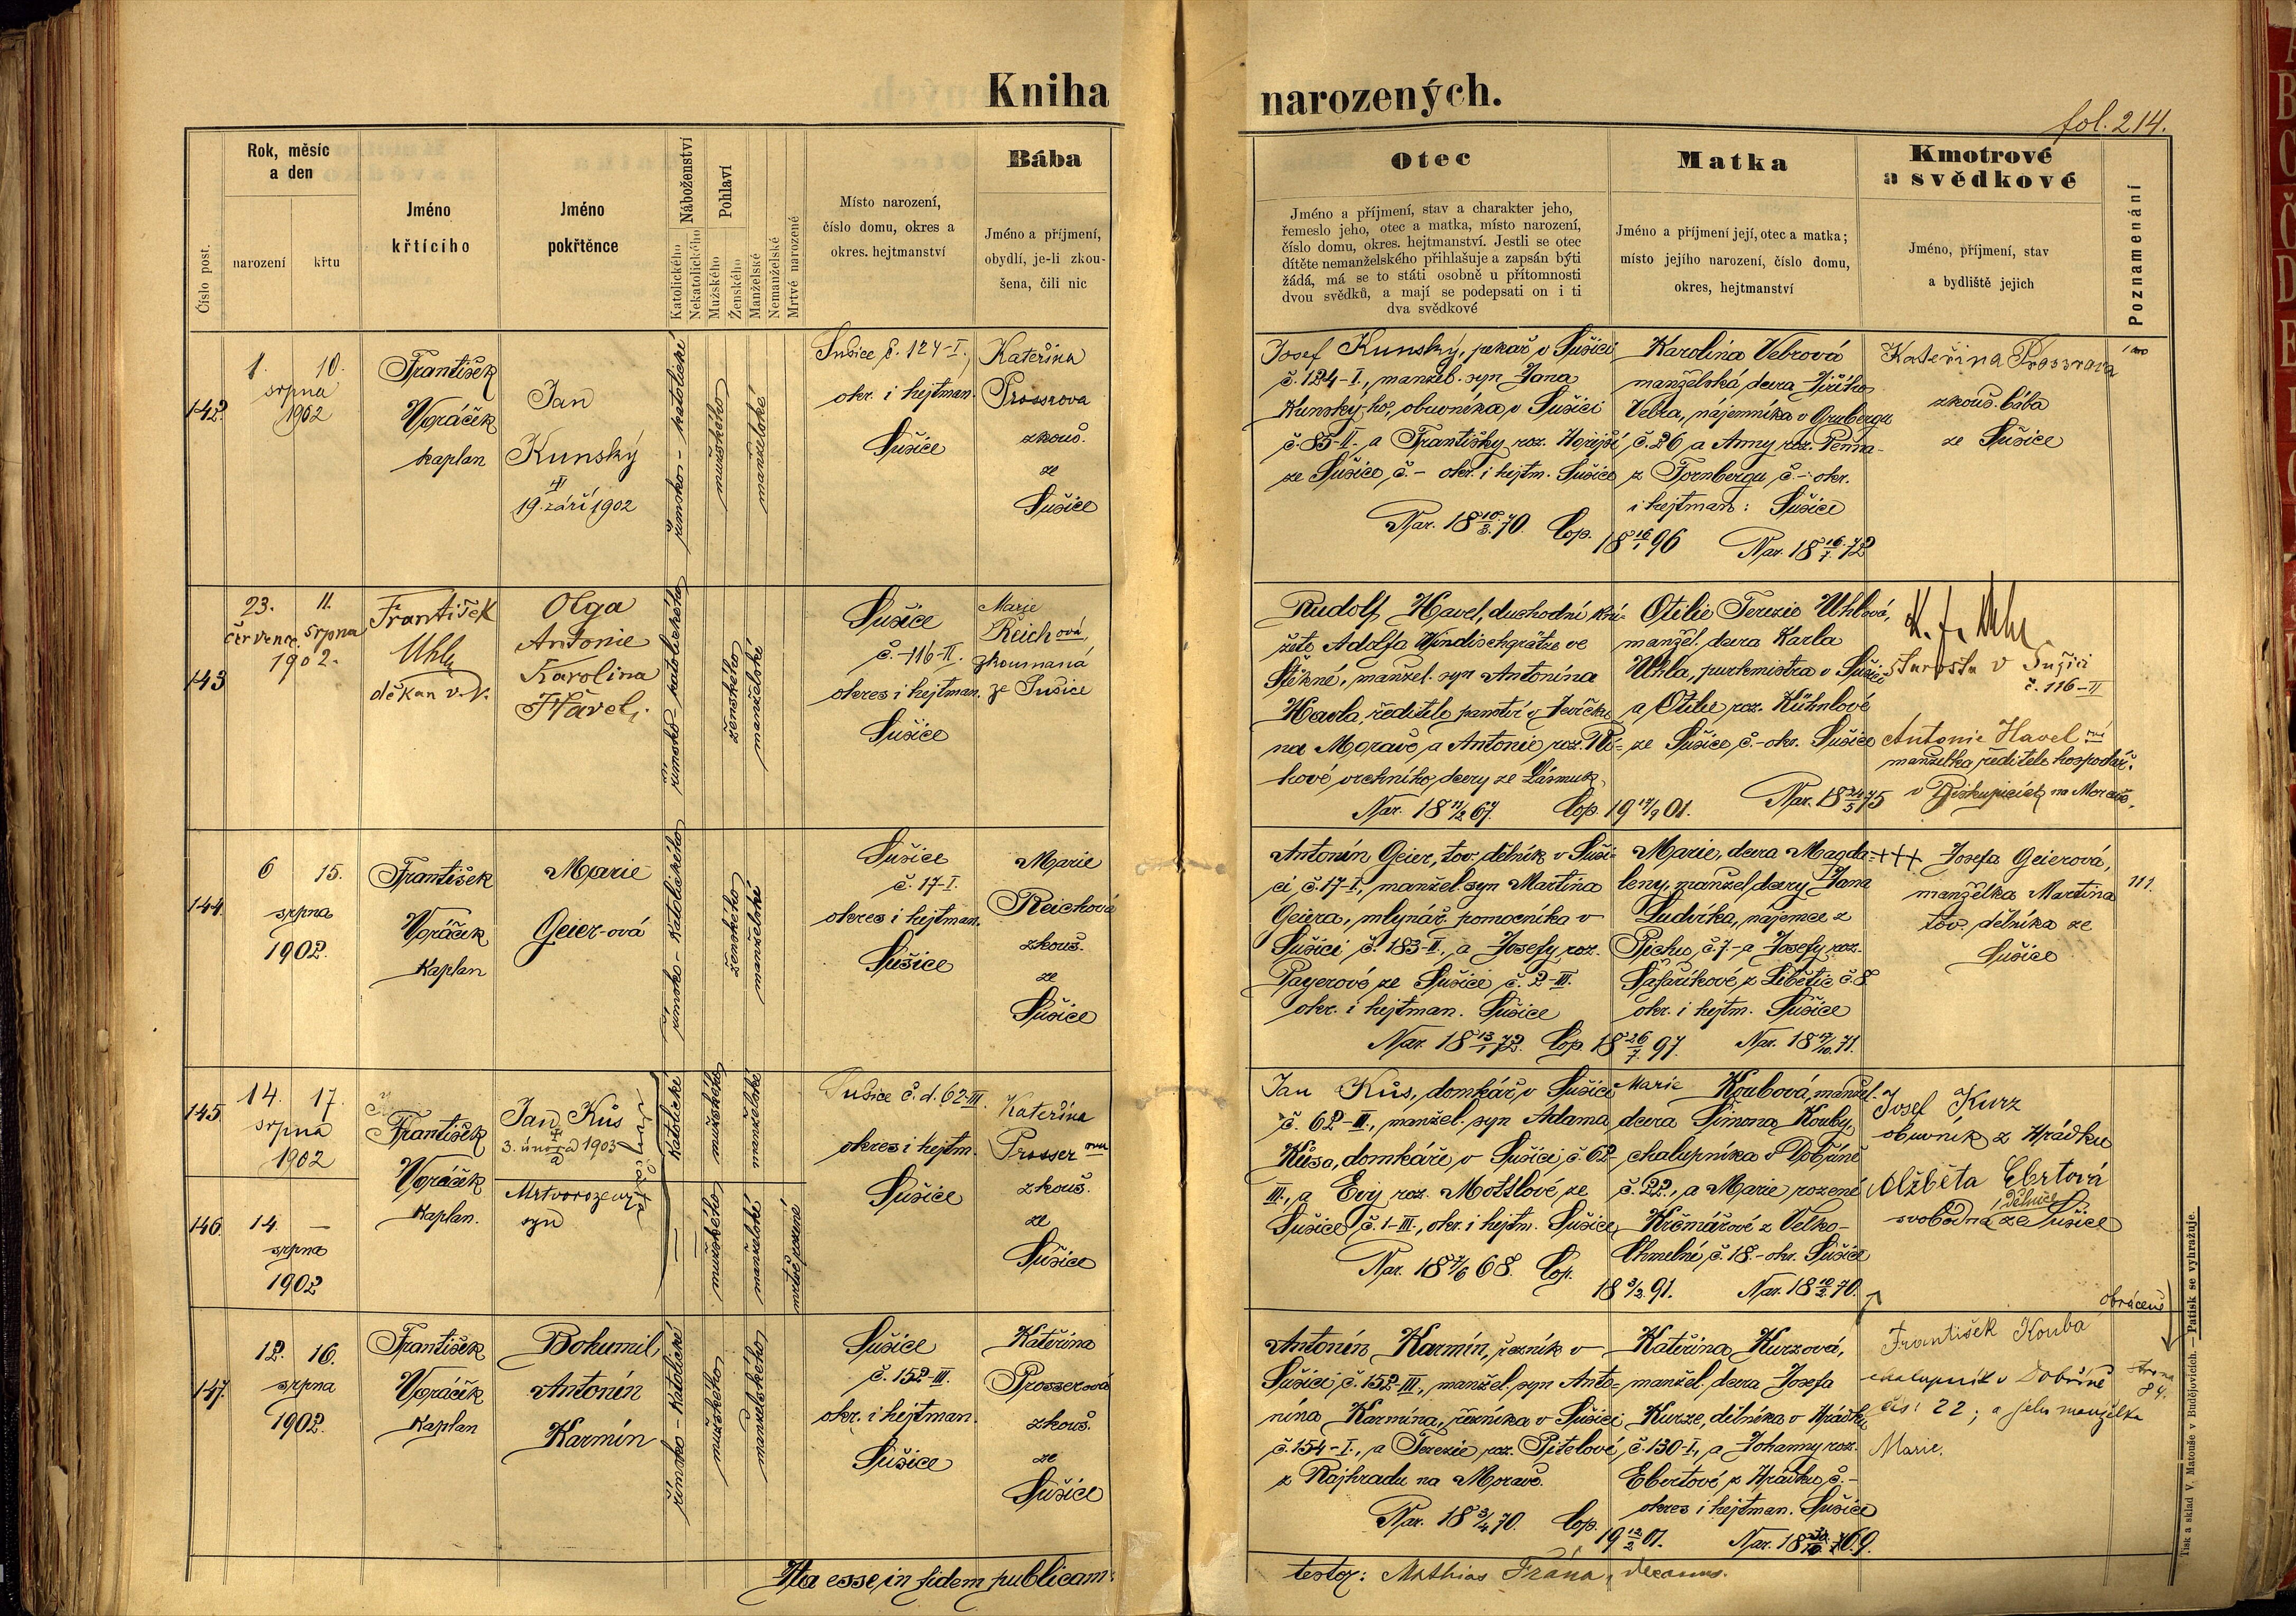 Kniha
narozených.
fol. 214.
Číslo post.
Rok, měsíc
a den
narození
křtu
Jméno
křtícího
Jméno
pokřtěnce
Náboženství
Katolického
Nekatolického
Pohlaví
Mužského
Ženského
Manželské
Nemanželské
Mrtvé narozené
Místo narození,
číslo domu, okres a
okres. hejtmanství
Bába
Jméno a příjmení,
obydlí, je-li zkou-
šena, čili nic
Otec
Jméno a příjmení, stav a charakter jeho,
řemeslo jeho, otec a matka, místo narození,
číslo domu, okres. hejtmanství. Jestli se otec
dítěte nemanželského přihlašuje a zapsán býti
žádá, má se to státi osobně u přítomnosti
dvou svědků, a mají se podepsati on i ti
dva svědkové
Matka
Jméno a příjmení její, otec a matka;
místo jejího narození, číslo domu,
okres, hejtmanství
Kmotrové
a svědkové
Jméno, příjmení, stav
a bydliště jejich
Poznamenání
142
1. 10.
srpna
1902
František
Voráček
kaplan
Jan
Kunský
19. září 1902
římsko-katolické
mužského
manželské
Sušice č. 124-I.,
okr. i hejtman.
Sušice
Kateřina
Prosserova
zkouš.
ze
Sušice
Josef Kunský, pekař v Sušici
č. 124-I., manžel. syn Jana
Kunský-ho, obuvníka v Sušici
č. 85-II. a Františky roz. Hořejší
ze Sušice, č. - okr. i hejtm. Sušice
Nar. 18 10/3 70. Cop. 18 16/1 96
Karolina Vebrová
manželská dcera Jiřího
Vebra, nájemníka v Grubergu
č. 26, a Anny roz. Penna-
z Fornbergu č. - okr.
i hejtman: Sušice
Nar. 18 16/7 72
Kateřina Prosserova
zkouš. bába
ze Sušice
143
23. 11.
července srpna
1902.
František
Uhl
děkan v. v.
Olga
Antonie
Karolina
Havel.
římsko-katolického
ženského
manželské
Sušice
č. -116-II.
okres i hejtman.
Sušice
Marie
Reichová
zkoumaná
ze Sušice
Rudolf Havel, duchodní kní-
žete Adolfa Windischgrätze ve
Štěkné, manžel. syn Antonína
Havla, ředitele panství v Jevíčku
na Moravě, a Antonie roz. Wo-
kové vrchního dcery ze Zásmuk
Nar. 18 11/12 67 Cop. 19 17/9 01.
Otilie Terezie Uhlová,
manžel. dcera Karla
Uhla, purkmistra v Sušici
a Otilie roz. Kühnlové
ze Sušice, č. - okr. Sušice
Nar. 18 24/5 75
starosta v Sušici
č. 116-II
Antonie Havel
manželka ředitele hospodář.
v Biskupicích na Moravě.
144
6 15.
srpna
1902.
František
Voráček
Kaplan
Marie
Geier-ová
římsko-katolického
ženského
manželské
Sušice
č. 17-I.
okres i hejtman.
Sušice
Marie
Reichová
zkouš.
ze
Sušice
Antonín Geier, tov. dělník v Suši-
ci č. 17-I., manžel. syn Martina
Geiera, mlynář. pomocníka v
Sušici č. 183-II., a Josefy roz.
Payerové ze Sušice, č. 2-III.
okr. i hejtman. Sušice
Nar. 18 13/1 72. Cop. 18 26/7 97.
Marie, dcera Magda-
leny, manžel. dcery Jana
Ludvíka, nájemce z
Pichu, č. 7 - a Josefy roz.
Šafaříkové z Libětic č. 8
okr. i hejtm. Sušice
Nar. 18 17/10 71.
+++ Josefa Geierová,
manželka Martina
tov. dělníka ze
Sušice
145
14. 17.
srpna
1902
František
Voráček
Kaplan.
Jan Kůs
3. února 1903
Katolické
mužského
manželské
Sušice č. d. 62-III.
okres i hejtm.
Sušice
Kateřina
Prosserova
zkouš.
ze
Sušice
Jan Kůs, domkář v Sušici
č. 62-III., manžel. syn Adama
Kůsa, domkáře v Sušici č. 62-
III., a Evy roz. Mottlové ze
Sušice č. 1-III., okr. i hejtm. Sušice
Nar. 18 7/6 68. Cop. 18 3/2 91.
Marie Koubová, manžel.
dcera Šimona Kouby,
chalupníka v Dobršíně
č. 22., a Marie rozené
Krčmářové z Velko-
Chmelné, č. 18. - okr. Sušice
Nar. 18 10/2 70.
Josef Kurz
obuvník z Hrádku
Alžběta Ebrtová
dělnice
svobodná ze Sušice
146
14. —
srpna
1902
Mrtvorozený
syn
mužského
manželské
mrtvě rozené
obráceně
147
12. 16.
srpna
1902.
František
Voráček
Kaplan
Bohumil,
Antonín
Karmín
římsko-katolické
mužského
manželského
Sušice
č. 152-III.
okr. i hejtman.
Sušice
Kateřina
Prosserová
zkouš.
ze
Sušice
Antonín Karmín, řezník v
Sušici, č. 152-III., manžel. syn Anto-
nína Karmína, řezníka v Sušici
č. 154-I., a Terezie roz. Pitelové
z Rajhradu na Moravě.
Nar. 18 3/4 70. Cop. 19 12/2 01.
Kateřina Kurzová,
manžel. dcera Josefa
Kurze, dělníka v Hrádku
č. 130-I., a Johanny roz.
Ebertové z Hrádku, č. -
okres i hejtman. Sušice
František Kouba
chalupník v Dobršíně
čís. 22; a jeho manželka
Marie.
strana
84.
Ita esse, in fidem publicam
testor: Mathias Frána, decanus.
Tisk a sklad V. Matouše v Budějovicích. — Patisk se vyhražuje.